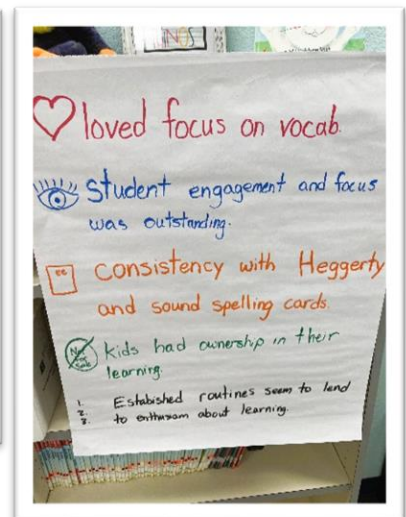 loved focus on vocab.
Student engagement and focus
was outstanding.
ee
consistency with Heggerty
and sound spelling cards.
Not
for
Sale
kids had ownership in their
learning.
1.
2.
3.
Estabished routines seem to lend
to enthusasm about learning.